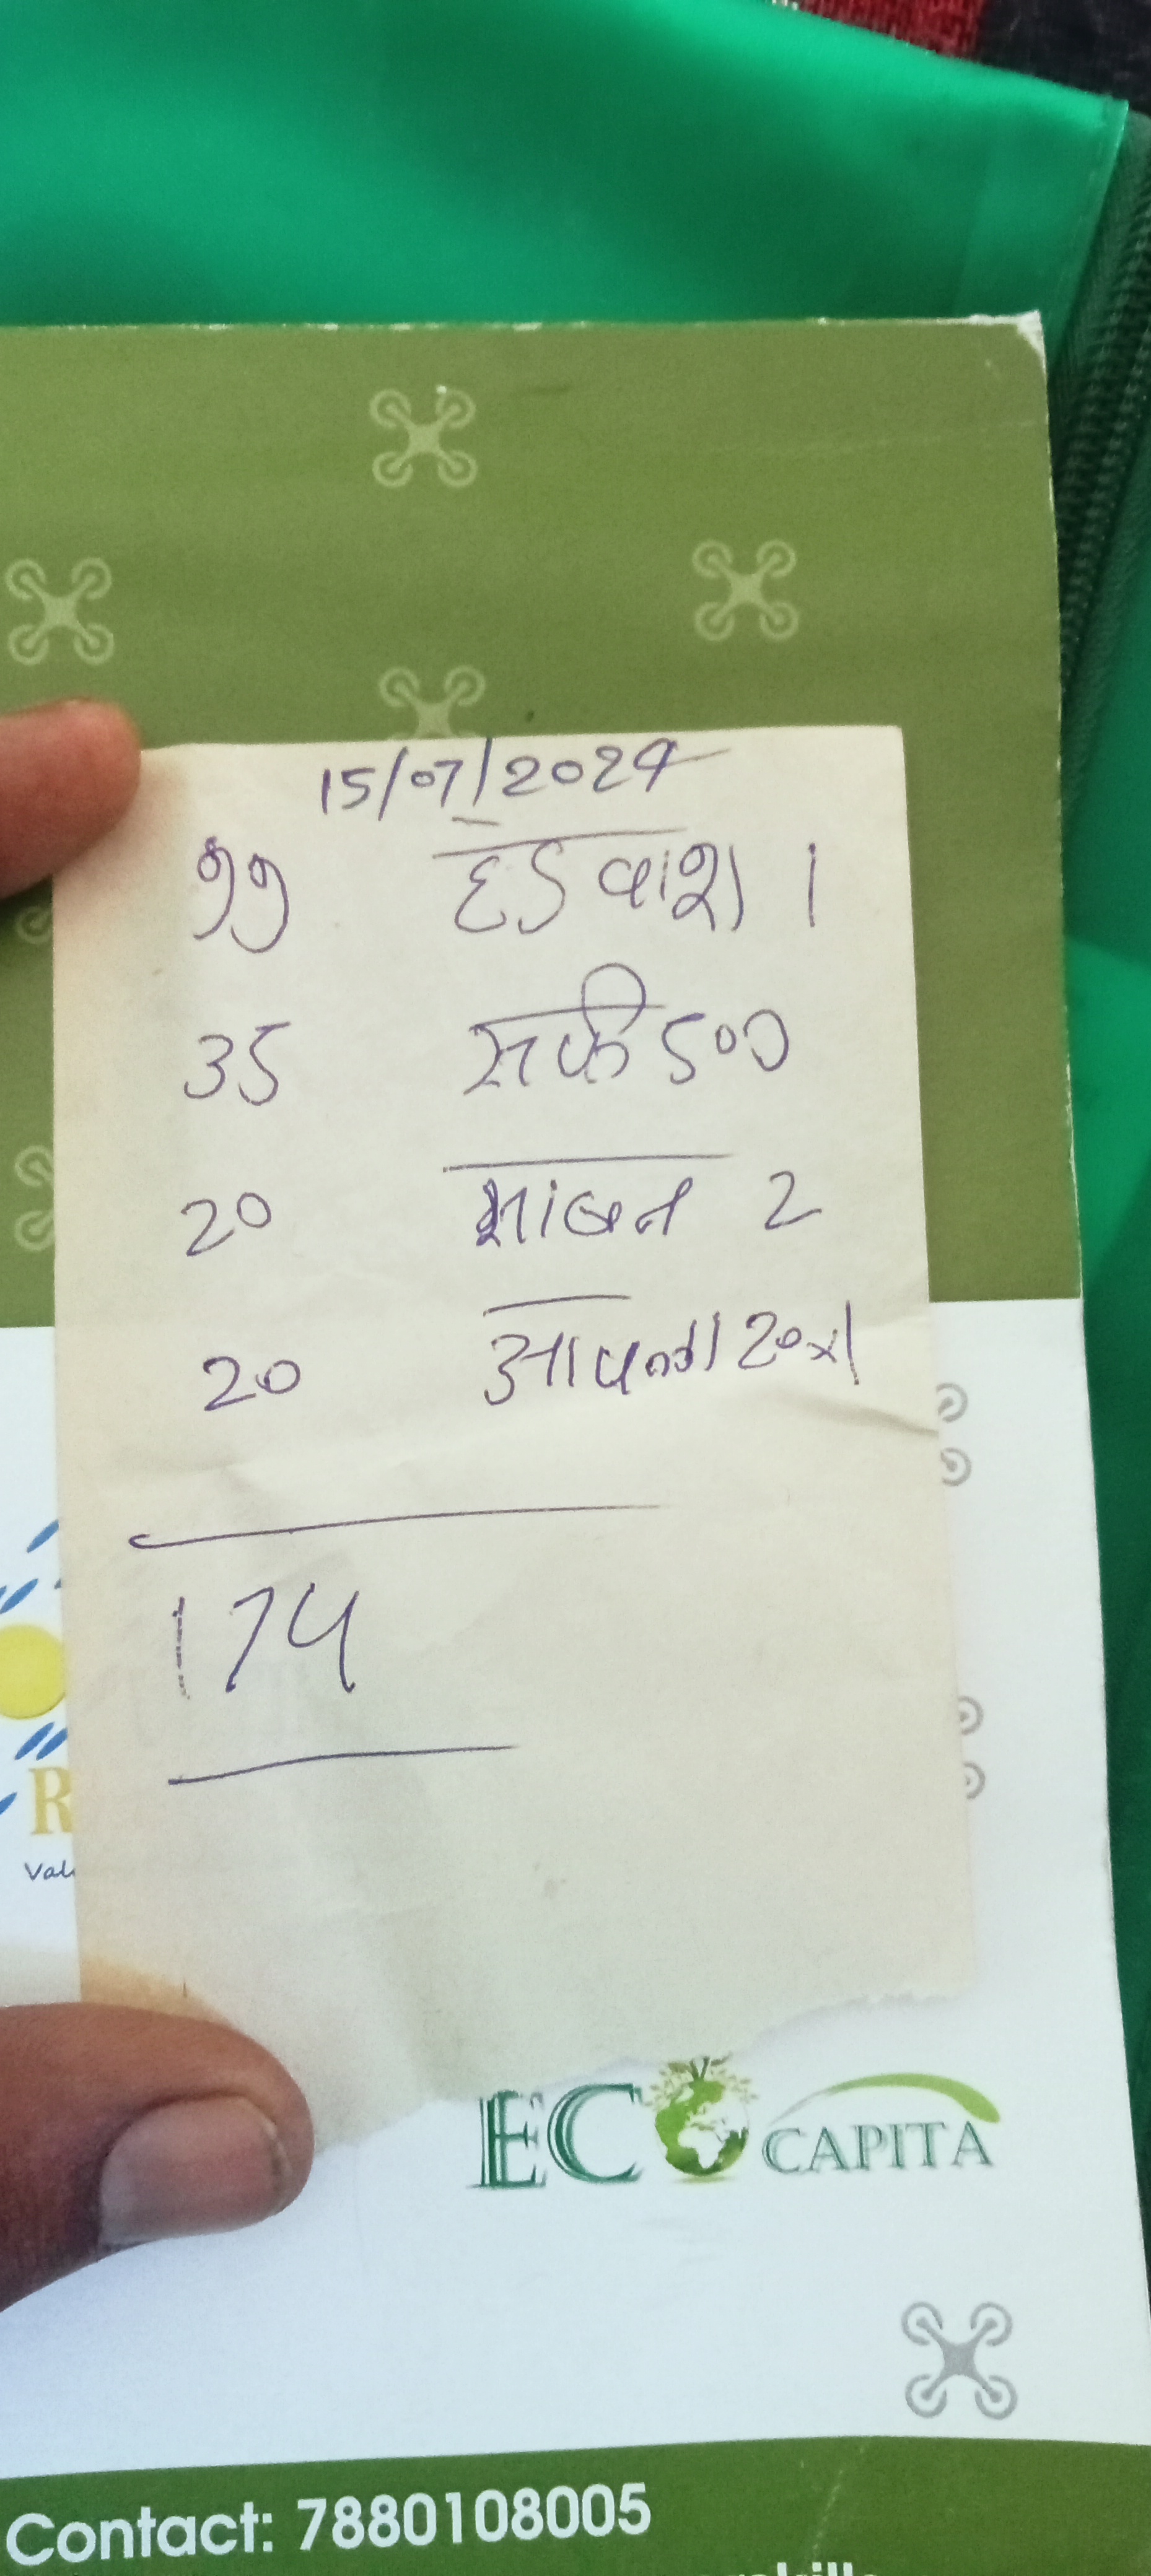 15/07/2024
99 हैंडवाश 1
35 सर्फ 500
20 साबुन 2
20 20x1
174
R
Val
ECO CAPITA
Contact: 7880108005